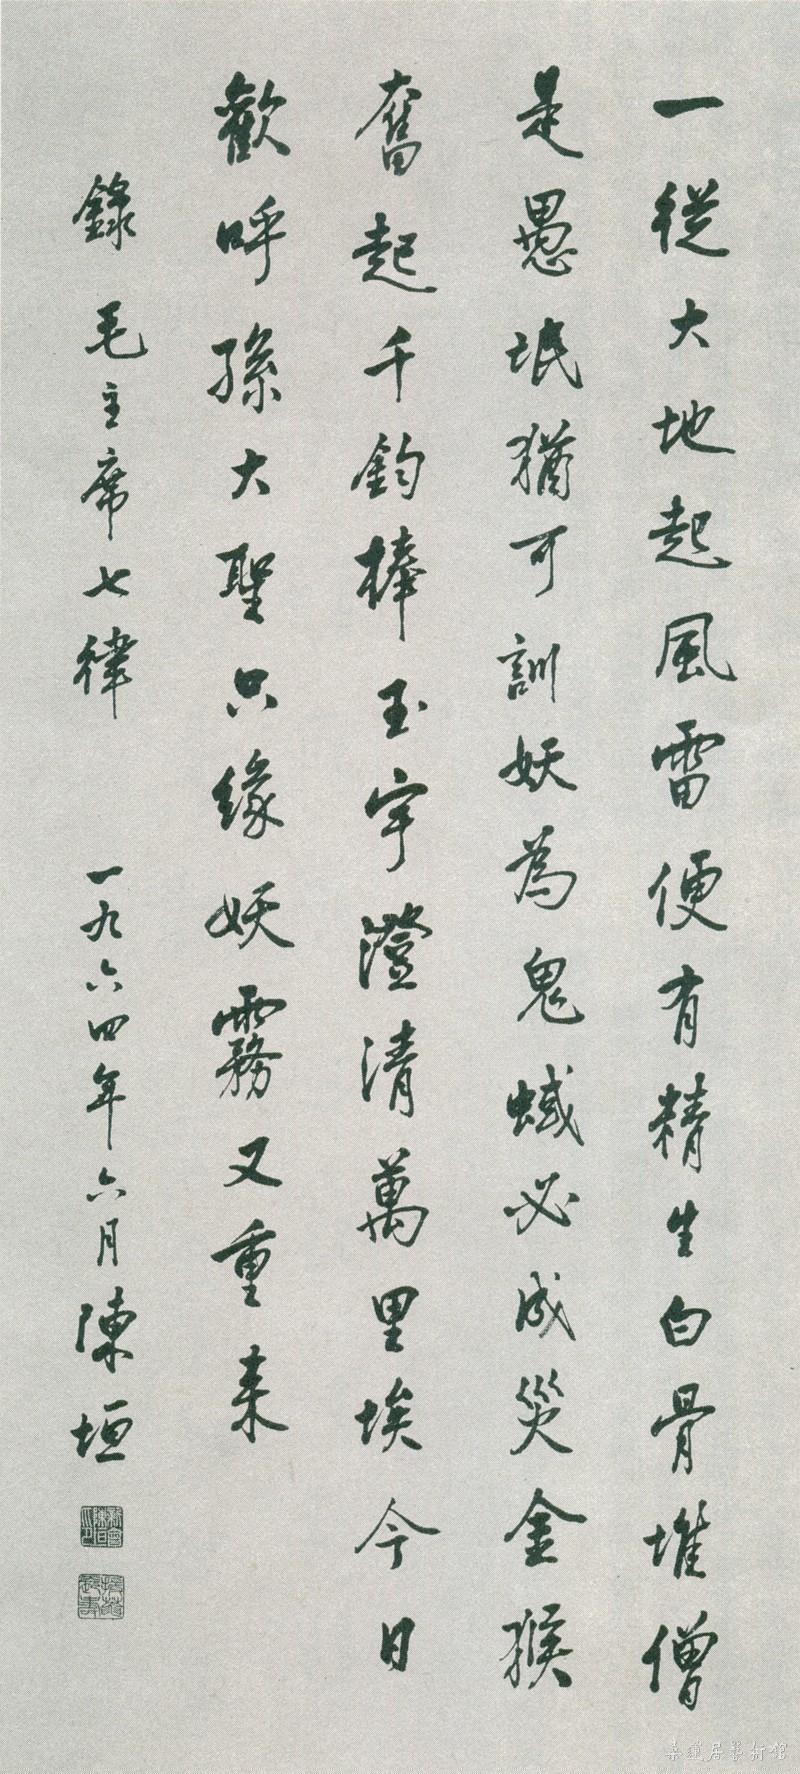 一從大地起風雷便有精生白骨堆僧
是愚氓猶可訓妖為鬼蜮必成災金猴
奮起千鈞棒玉宇澄清萬里埃今日
歡呼孫大聖只緣妖霧又重来
錄毛主席七律 一九六四年六月陳垣